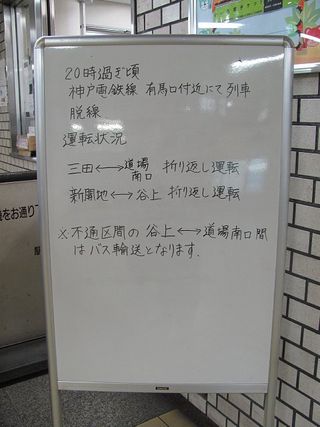 20時過ぎ頃
神戸電鉄線 有馬口付近にて列車
脱線
運転状況
三田←→道場南口 折り返し運転
新開地←→谷上 折り返し運転
※不通区間の 谷上←→道場南口間
はバス輸送となります.
をお通り下